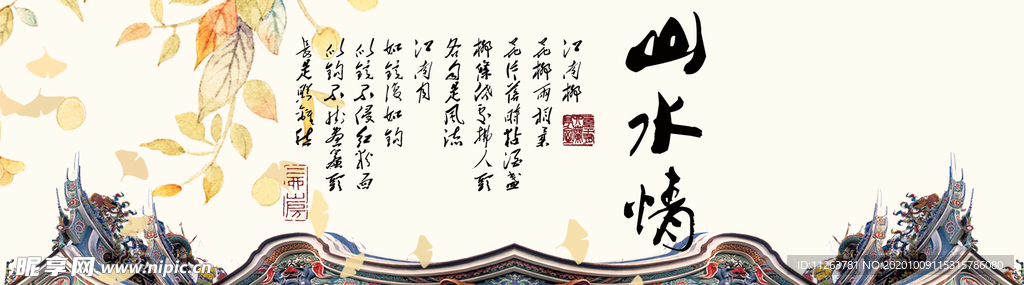 山水情
江南柳
花柳兩相柔
花片落時黏酒盞
柳條低處拂人頭
各自是風流
江南月
如鏡復如鉤
似鏡不侵紅粉面
似鉤不掛畫簾頭
長是照離愁
昵享网 www.nipic.cn
ID:11263781 NO:20201009115315786080